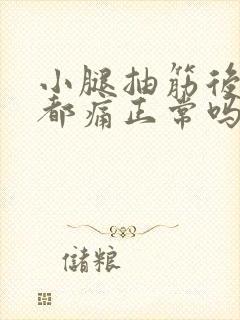 小腿抽筋後
都痛正常吗
儲粮